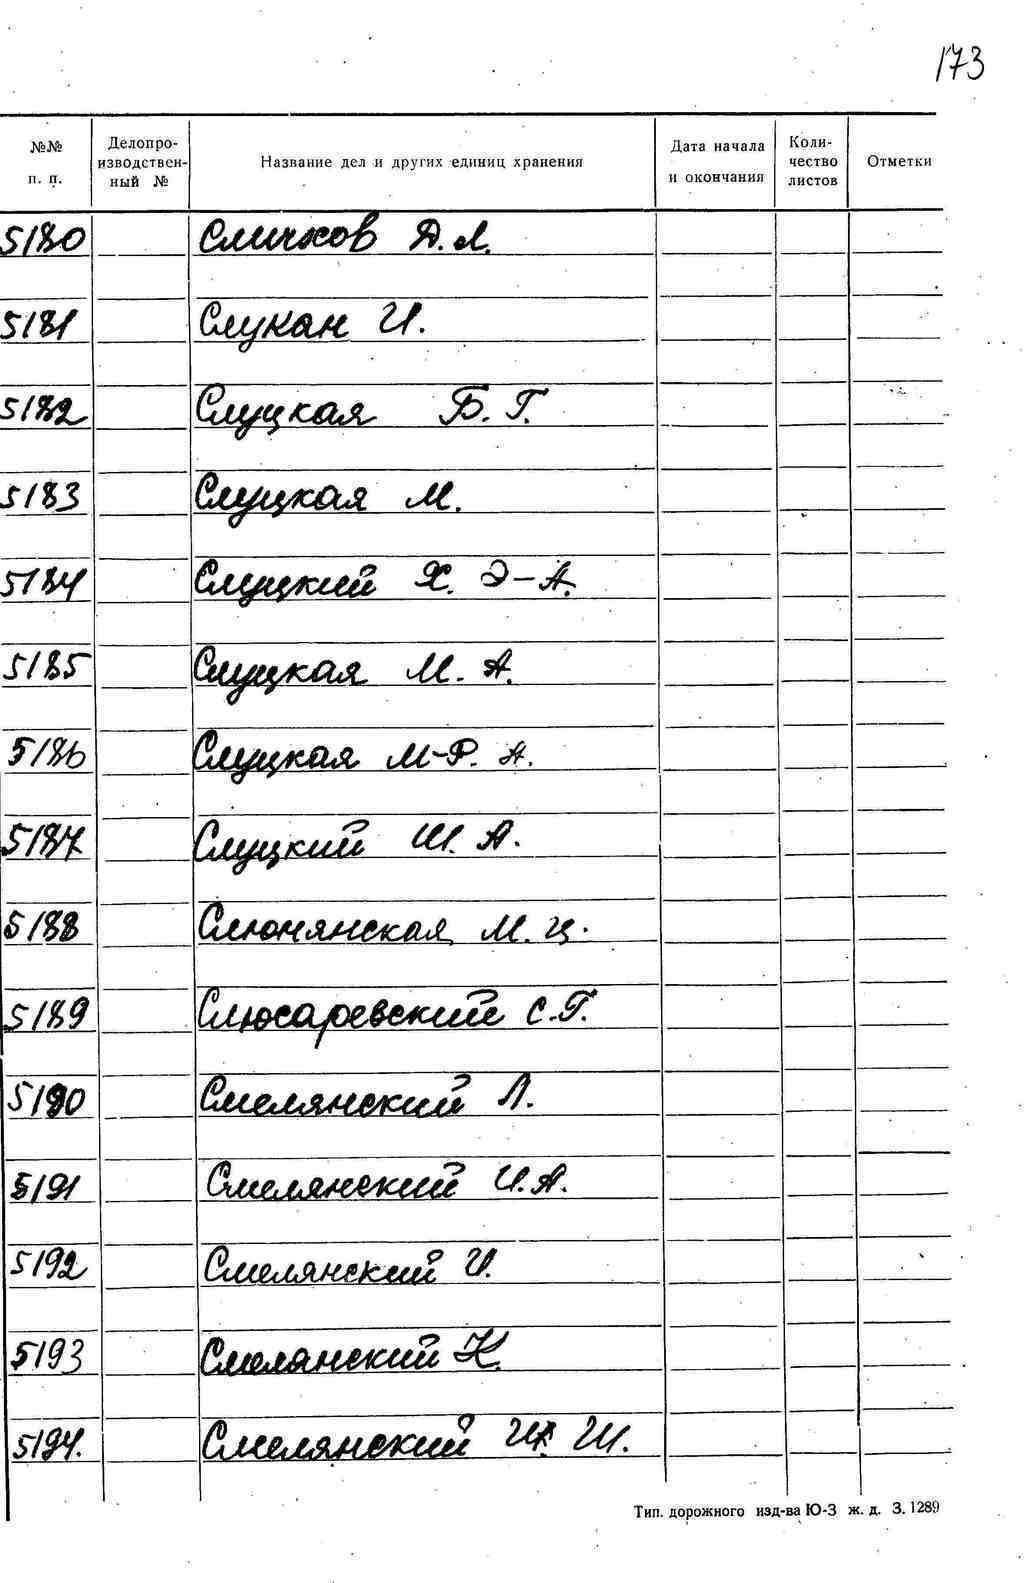 173
№№ п. п. Делопроизводственный № Название дел и других единиц хранения Дата начала и окончания Количество листов Отметки
5180 Сличков Д. Л.
5181 Слукан И.
5182 Слуцкая Б. Г.
5183 Слуцкая М.
5184 Слуцкий Х. Э-А.
5185 Слуцкая М. А.
5186 Слуцкая М-Р. А.
5187 Слуцкий Ш. А.
5188 Слюнянская М. Ц.
5189 Слюсаревский С. Г.
5190 Смелянский Л.
5191 Смелянский И. А.
5192 Смелянский И.
5193 Смелянский К.
5194. Смелянский Ш.
Тип. дорожного изд-ва Ю-З ж. д. З. 1289